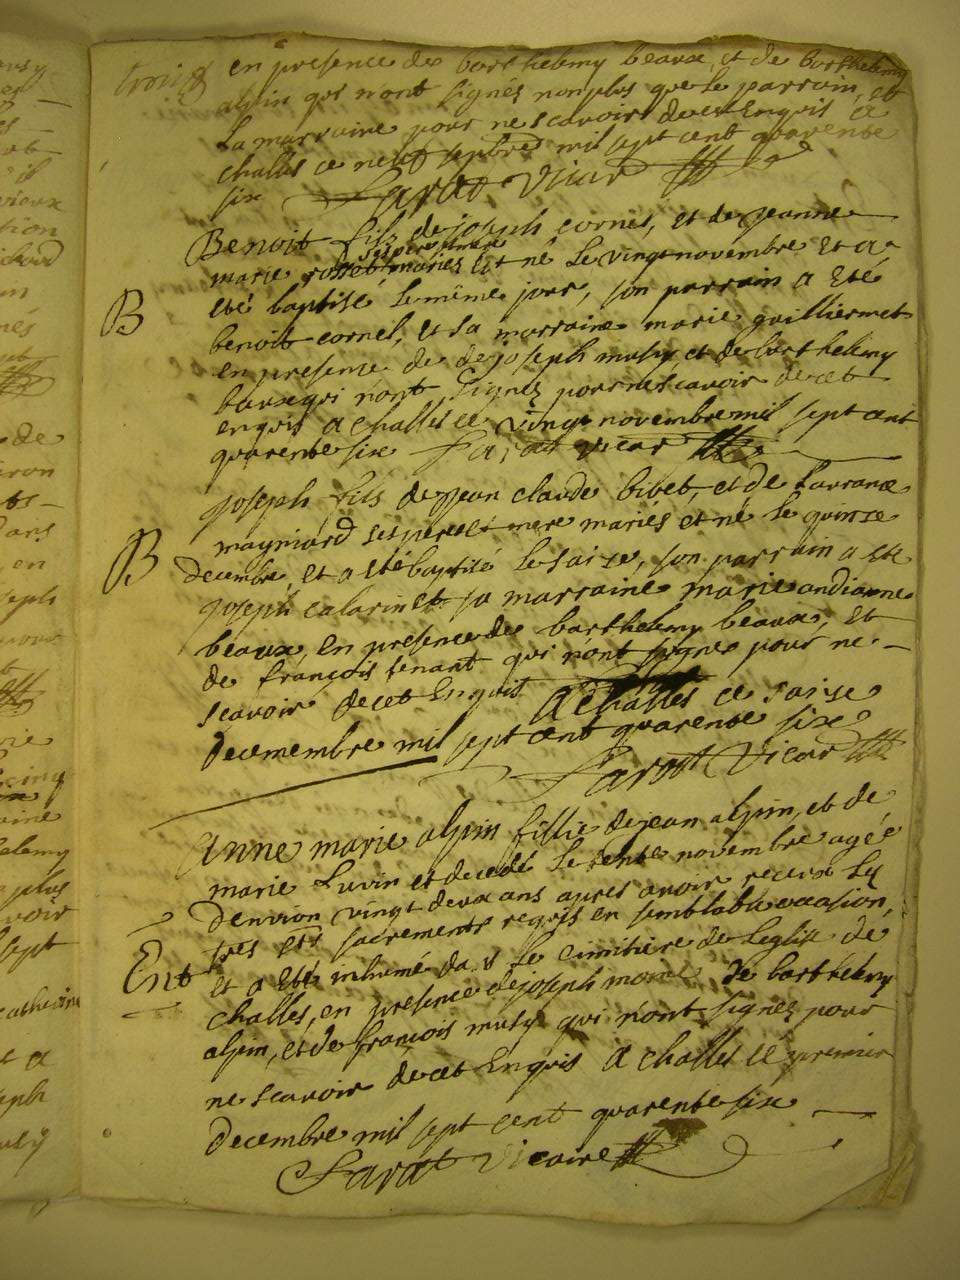 en presence de barthelemy beaux, et de barthelemy
alpin qui nont signés non plus que le parrain, et
la marraine pour ne scavoir de cet Enquis a
challes ce neuf sepbre mil sept cent quarente
six Farat vicar
Benoit fils de joseph cornet, et de jeanne
ses pere et mere
marie rosset mariés Est né Le vingt novembre Et a
eté baptisé le même jour, son parrain a eté
benoit cornet, et sa marraine marie guilliermet
en presence de de joseph musy et de barthelemy
baux qui nont signez pour ne scavoir de cet
enquis a challes ce vingt novembre mil sept cent
quarente six Farat vicar
B
joseph fils de jean claude bibet, et de Laurance
mayniard ses pere et mere mariés et né le quinze
decembre et a eté baptisé le saize, son parrain a eté
joseph calarin et sa marraine marie andrianne
beaux, En presence de barthelemy beaux, Et
de françois tenant qui nont signes pour ne
scavoir de cet Enquis A challes ce saize
decemembre mil sept cent quarente six
Farat vicar
B
Anne marie alpin fillie de jean alpin, et de
marie Luvin et decedé le trente novembre agée
denvion vingt deux ans apres avoir receu les
sacrements requis en semblable occasion,
et a eté inhumé dans le cimitiere de Leglise de
challes, en presence de joseph moine de barthelemy
alpin, et de françois musy qui n'ont signez pour
ne scavoir de cet Enquis A challes ce premier
decembre mil sept cent quarente six
Farat vicaire
Ent